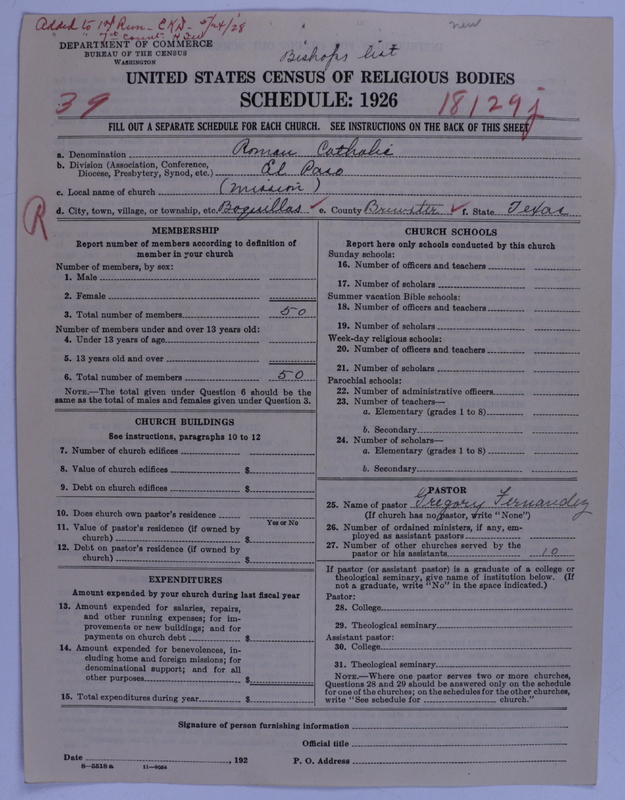 Added to 1st Run - EKD - 5/24/28
new
DEPARTMENT OF COMMERCE
BUREAU OF THE CENSUS
WASHINGTON
Bishops list
UNITED STATES CENSUS OF RELIGIOUS BODIES
SCHEDULE: 1926
39
18129j
FILL OUT A SEPARATE SCHEDULE FOR EACH CHURCH. SEE INSTRUCTIONS ON THE BACK OF THIS SHEET
a. Denomination Roman Catholic
b. Division (Association, Conference,
Diocese, Presbytery, Synod, etc.) El Paso
c. Local name of church (Mission)
R
d. City, town, village, or township, etc. Boquillas ✓ e. County Brewster ✓ f. State Texas
MEMBERSHIP
Report number of members according to definition of
member in your church
Number of members, by sex:
1. Male
2. Female
3. Total number of members 50
Number of members under and over 13 years old:
4. Under 13 years of age
5. 13 years old and over
6. Total number of members 50
NOTE.—The total given under Question 6 should be the
same as the total of males and females given under Question 3.
CHURCH BUILDINGS
See instructions, paragraphs 10 to 12
7. Number of church edifices
8. Value of church edifices $
9. Debt on church edifices $
10. Does church own pastor's residence
Yes or No
11. Value of pastor's residence (if owned by
church) $
12. Debt on pastor's residence (if owned by
church) $
EXPENDITURES
Amount expended by your church during last fiscal year
13. Amount expended for salaries, repairs,
and other running expenses; for im-
provements or new buildings; and for
payments on church debt $
14. Amount expended for benevolences, in-
cluding home and foreign missions; for
denominational support; and for all
other purposes $
15. Total expenditures during year $
CHURCH SCHOOLS
Report here only schools conducted by this church
Sunday schools:
16. Number of officers and teachers
17. Number of scholars
Summer vacation Bible schools:
18. Number of officers and teachers
19. Number of scholars
Week-day religious schools:
20. Number of officers and teachers
21. Number of scholars
Parochial schools:
22. Number of administrative officers
23. Number of teachers—
a. Elementary (grades 1 to 8)
b. Secondary
24. Number of scholars—
a. Elementary (grades 1 to 8)
b. Secondary
PASTOR
25. Name of pastor Gregory Fernandez
(If church has no pastor, write "None")
26. Number of ordained ministers, if any, em-
ployed as assistant pastors
27. Number of other churches served by the
pastor or his assistants 10
If pastor (or assistant pastor) is a graduate of a college or
theological seminary, give name of institution below. (If
not a graduate, write "No" in the space indicated.)
Pastor:
28. College
29. Theological seminary
Assistant pastor:
30. College
31. Theological seminary
NOTE.—Where one pastor serves two or more churches,
Questions 28 and 29 should be answered only on the schedule
for one of the churches; on the schedules for the other churches,
write "See schedule for church."
Signature of person furnishing information
Official title
Date , 192 P. O. Address
8—5518 a 11—9054